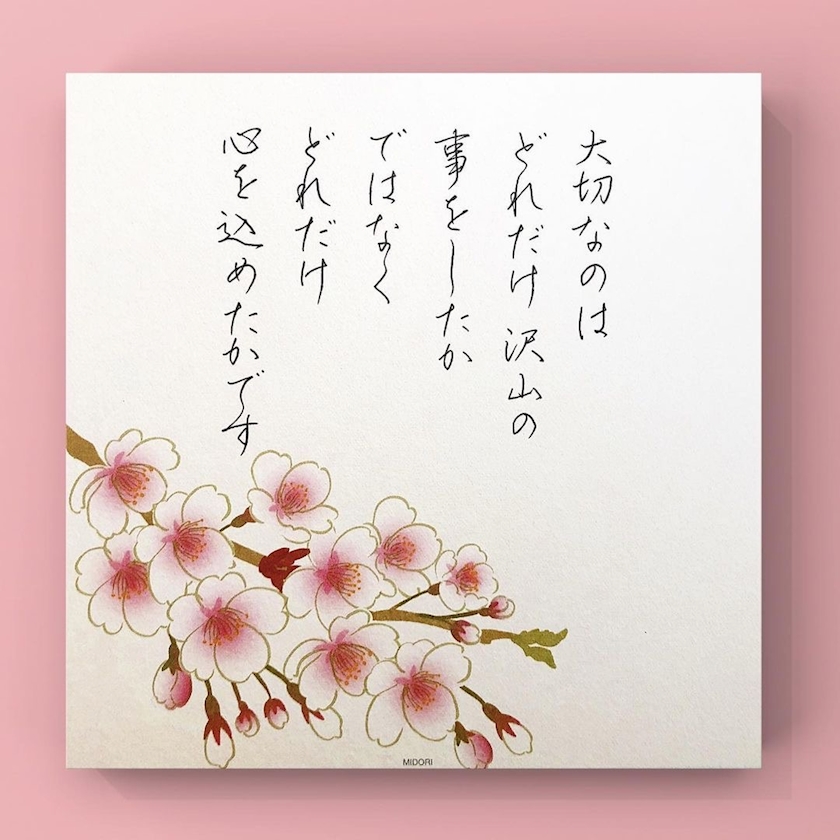 大切なのは
どれだけ沢山の
事をしたか
ではなく
どれだけ
心を込めたかです
MIDORI